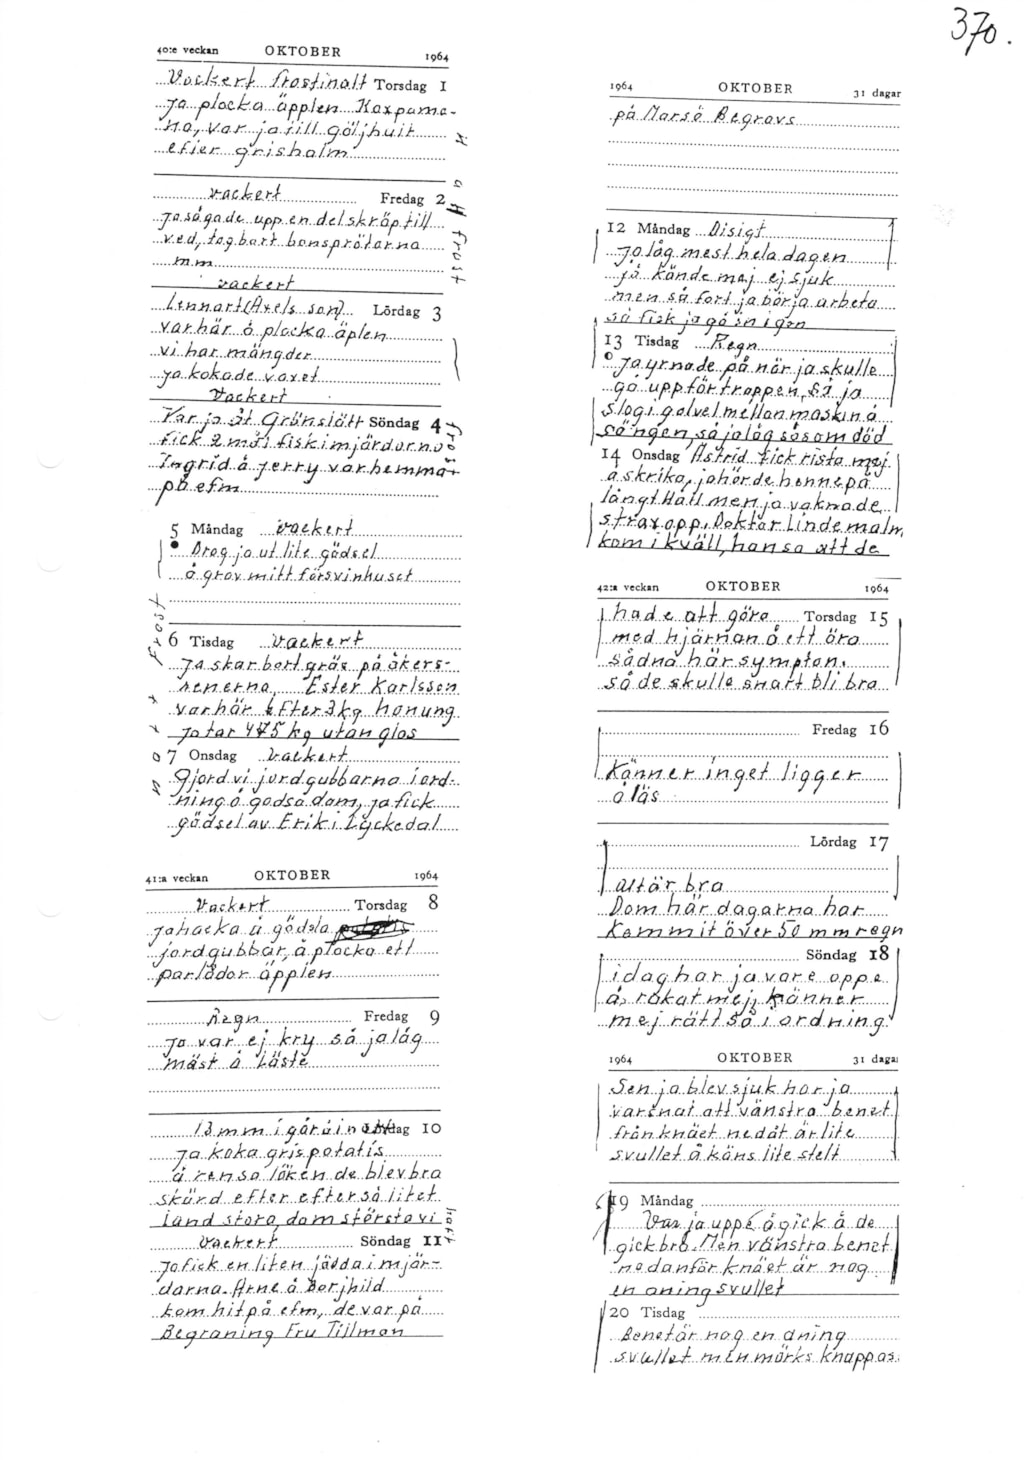 370.
40:e veckan OKTOBER 1964
Vackert frostinatt Torsdag 1
ja plocka äpplen
na, var ja till göljhult
efter grisholm
vackert Fredag 2
ja sågade upp en del skräp till
ved, tog bort bonsprötarna
m.m.
frost
vackert
Lennart (Axels son) Lördag 3
var här å plocka äplen
vi har mängder
ja kokade vaxet
Vackert
Var ja åt Grönslätt Söndag 4
fick 2 mål fisk i mjärdorna
frost
Ingrid å Jerry var hemma
på efm
5 Måndag vackert
Drog ja ut lite gödsel
å grov mitt försvinhuset
frost
6 Tisdag Vackert
Ja skar bort gräs på åkers-
renerna, Ester Karlsson
var här efter 3 kg honung
ja tar 4 75 kg utan glas
7 Onsdag Vackert
Gjord vi jordgubbarna i ord-
ning å godsa dom, ja fick
gödsel av Erik i Lyckedal
41:a veckan OKTOBER 1964
Vackert Torsdag 8
ja hacka å gödsla
jordgubbar, å plocka ett
par lådor äpplen
Regn Fredag 9
Ja var ej kry så ja låg
mäst å läste
13 mm i går å i natt 10
Ja koka grispotatis
å rensa löken de blev bra
skörd efter efter så litet
land stora, dom största vi
Vackert Söndag 11
Ja fick en liten jädda i mjär-
darna. Arne å Borjhild
kom hit på efm, de var på
Begraning Fru Tillman
1964 OKTOBER 31 dagar
på Marsö Begravs
12 Måndag Disigt
Ja låg mest hela dagen
ja kände mej ej sjuk
men så fort ja börja arbeta
så fick ja gå in igen
13 Tisdag Regn
Ja yrnade på när ja skulle
gå upp för trappen, så ja
slog i golvet mellan maskin å
sängen, så ja låg så som död
14 Onsdag Astrid fick rista mej
å skrika, ja hörde henne på
långt Håll men ja vaknade
strax opp, Doktor Lindemalm
kom i kväll, han sa att de
42:a veckan OKTOBER 1964
hade att göra Torsdag 15
med hjärnan å ett öra
sådna här sympton,
så de skulle snart bli bra
Fredag 16
Känner inget ligger
å läs
Lördag 17
allt är bra
Dom här dagarna har
kommit över 50 mm regn
Söndag 18
idag har ja vare oppe
å rakat mej, känner
mej rätt så i ordning.
1964 OKTOBER 31 dagar
Sen ja blev sjuk har ja
varsnat att vänstra benet
från knäet nedåt är lite
svullet å käns lite stelt
19 Måndag
Var ja uppe å gick å de
gick bra. Men vänstra benet
nedanför knäet är nog
en aning svullet
20 Tisdag
Benet är nog en aning
svullet men märks knappas